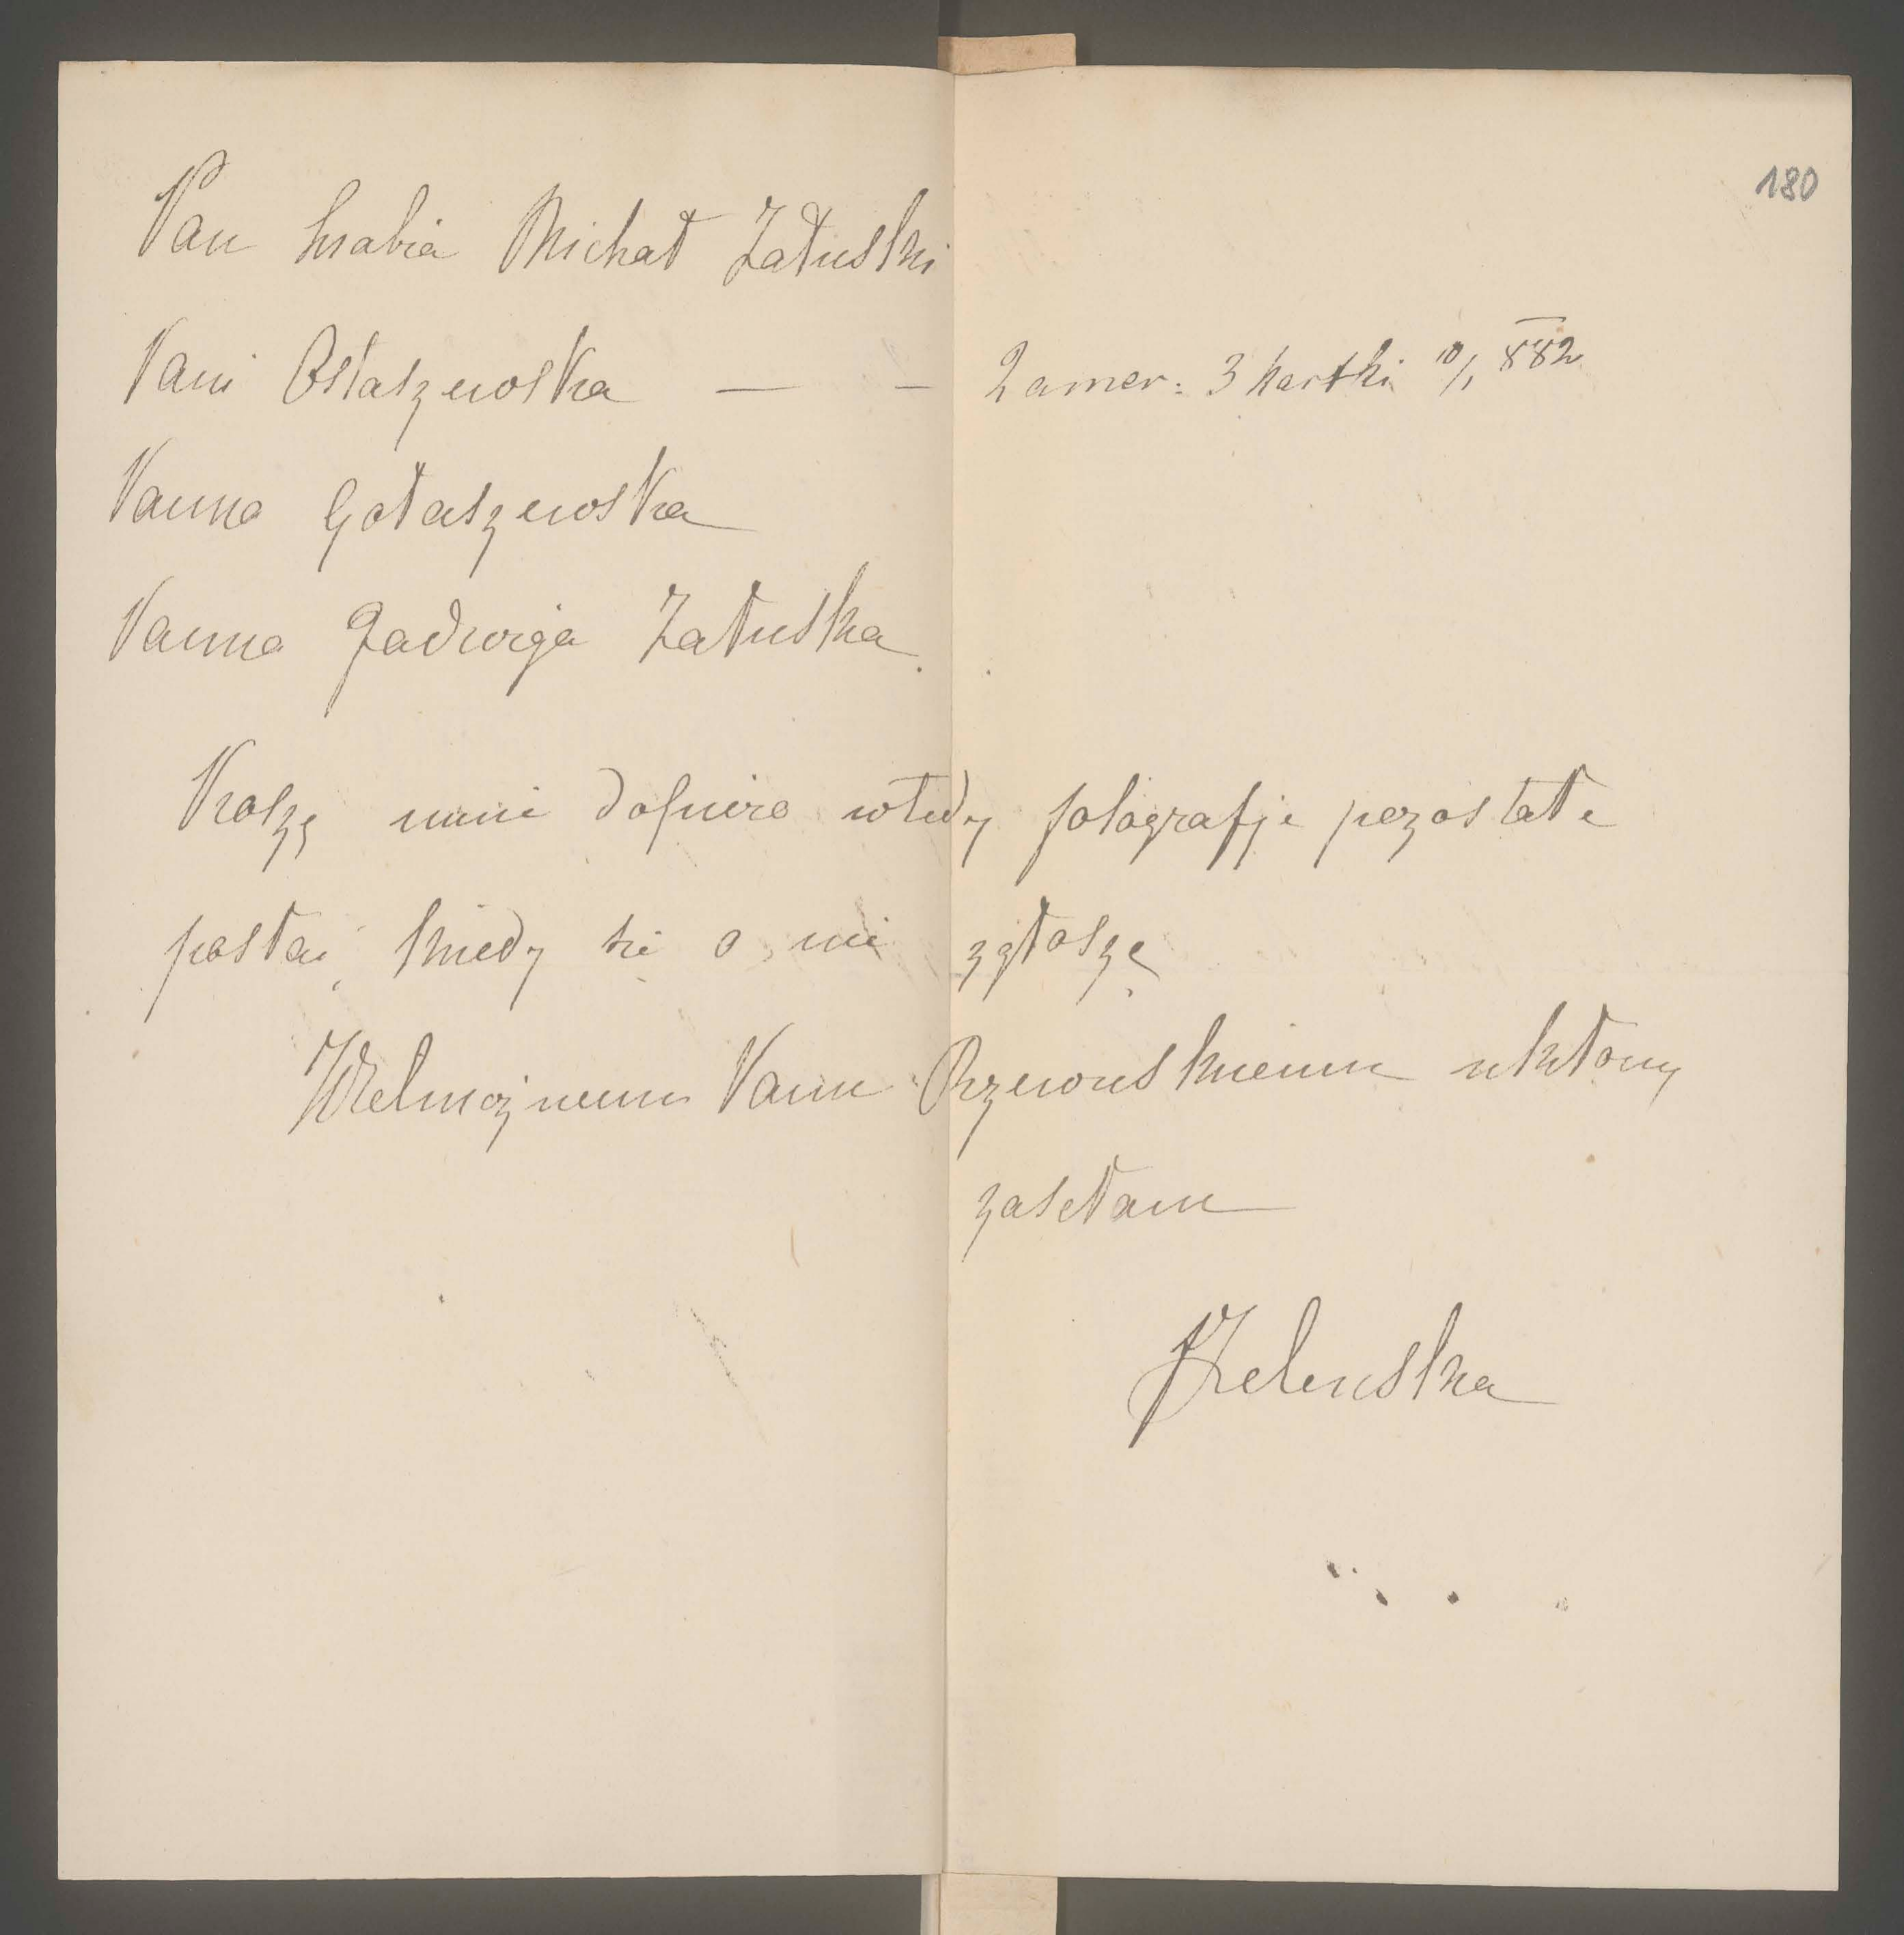 180
Pan hrabia Michał Załuski
Pani Ostaszewska — — 2 amer: 3 kartki 10/1 882
Panna Gołaszewska
Panna Jadwiga Załuska.
Proszę mnie dopiero wtedy fotografje pozostałe
posłać, kiedy się o nie zgłoszę
Wielmożnemu Panu Rzewuskiemu ukłony
zasełam